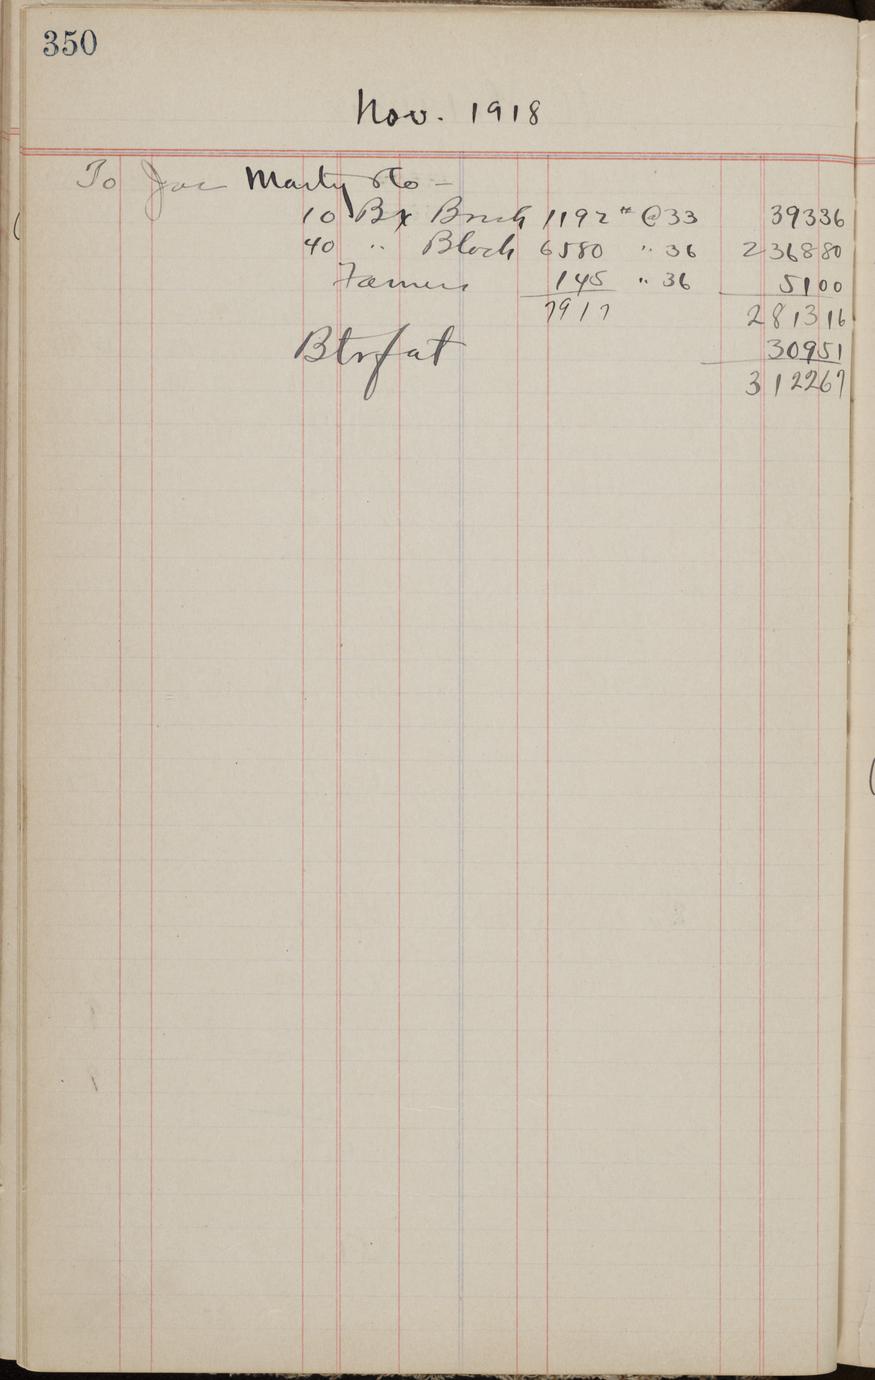 350
Nov. 1918
To Joe Marty & Co -
10 Bx Brick 1192 # @ 33 39336
40 " Block 6580 " 36 236880
Farmers 145 " 36 5100
7917 281316
Btrfat 30951
312267